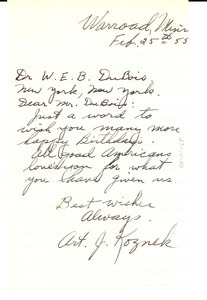 Warroad, Minn
Feb. 25th 55
Dr W. E. B. DuBois
New York, New York.
Dear Mr. DuBois:
Just a word to
wish you many more
happy Birthdays.
All good Americans
love you for what
you have given us.
Best wishes
Always.
Art. J. Koznek